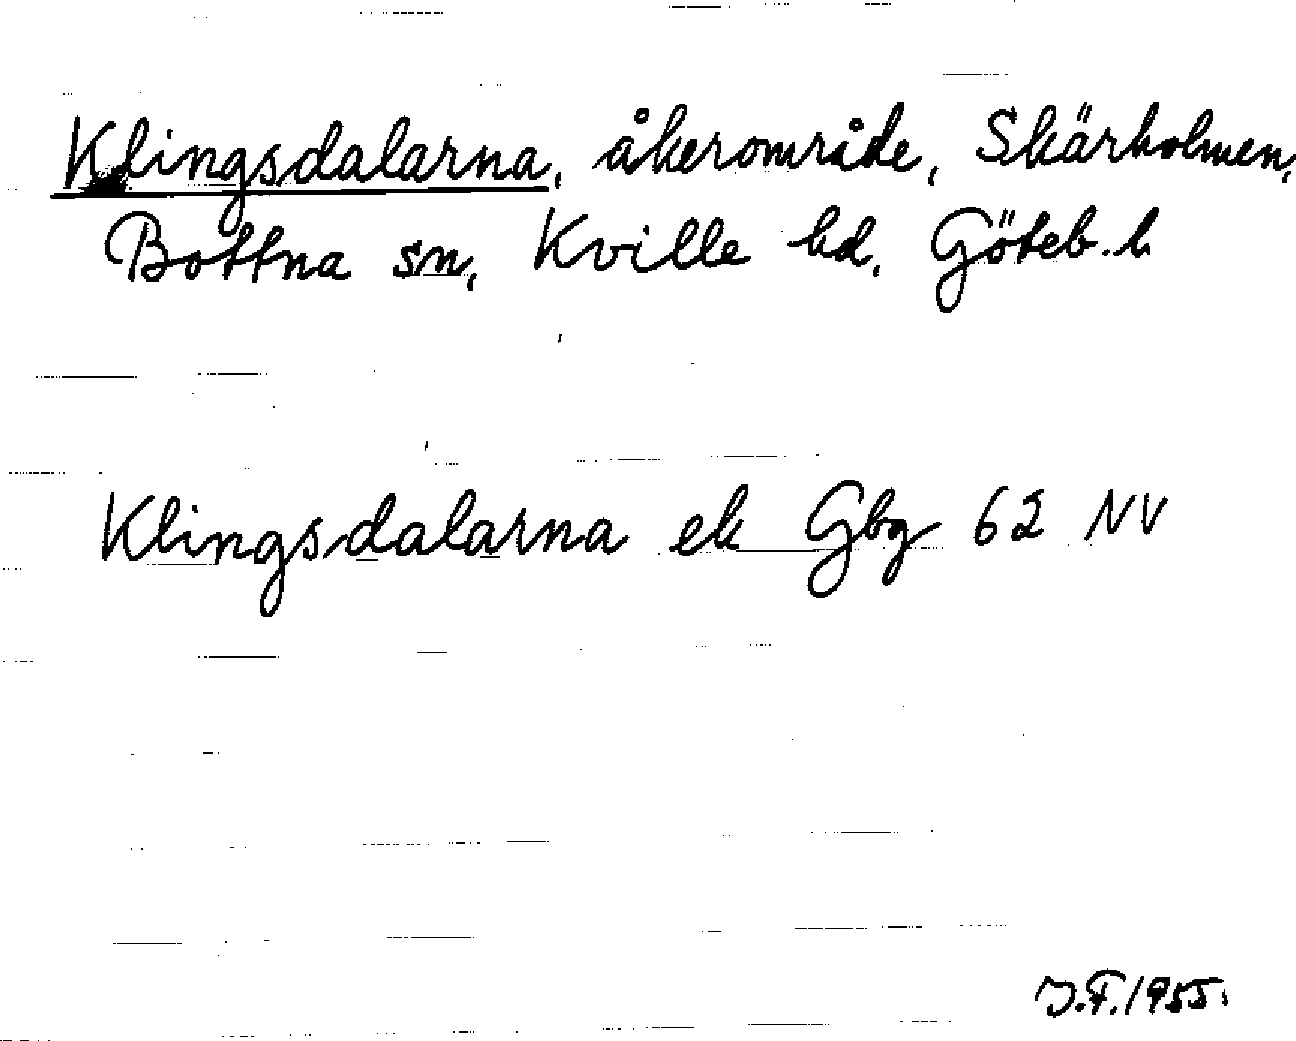 Klingsdalarna, åkerområde, Skärholmen,
Bottna sn, Kville hd, Göteb. l
Klingsdalarna ek Gbg 62 NV
J.F. 1955.